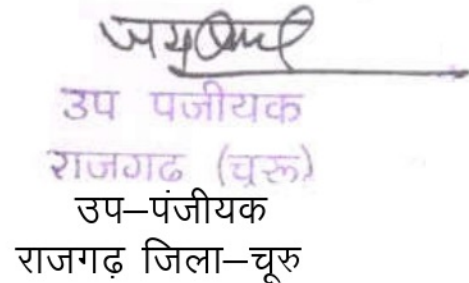 उप पजीयक
राजगढ (चूरू)
उप–पंजीयक
राजगढ़ जिला–चूरु